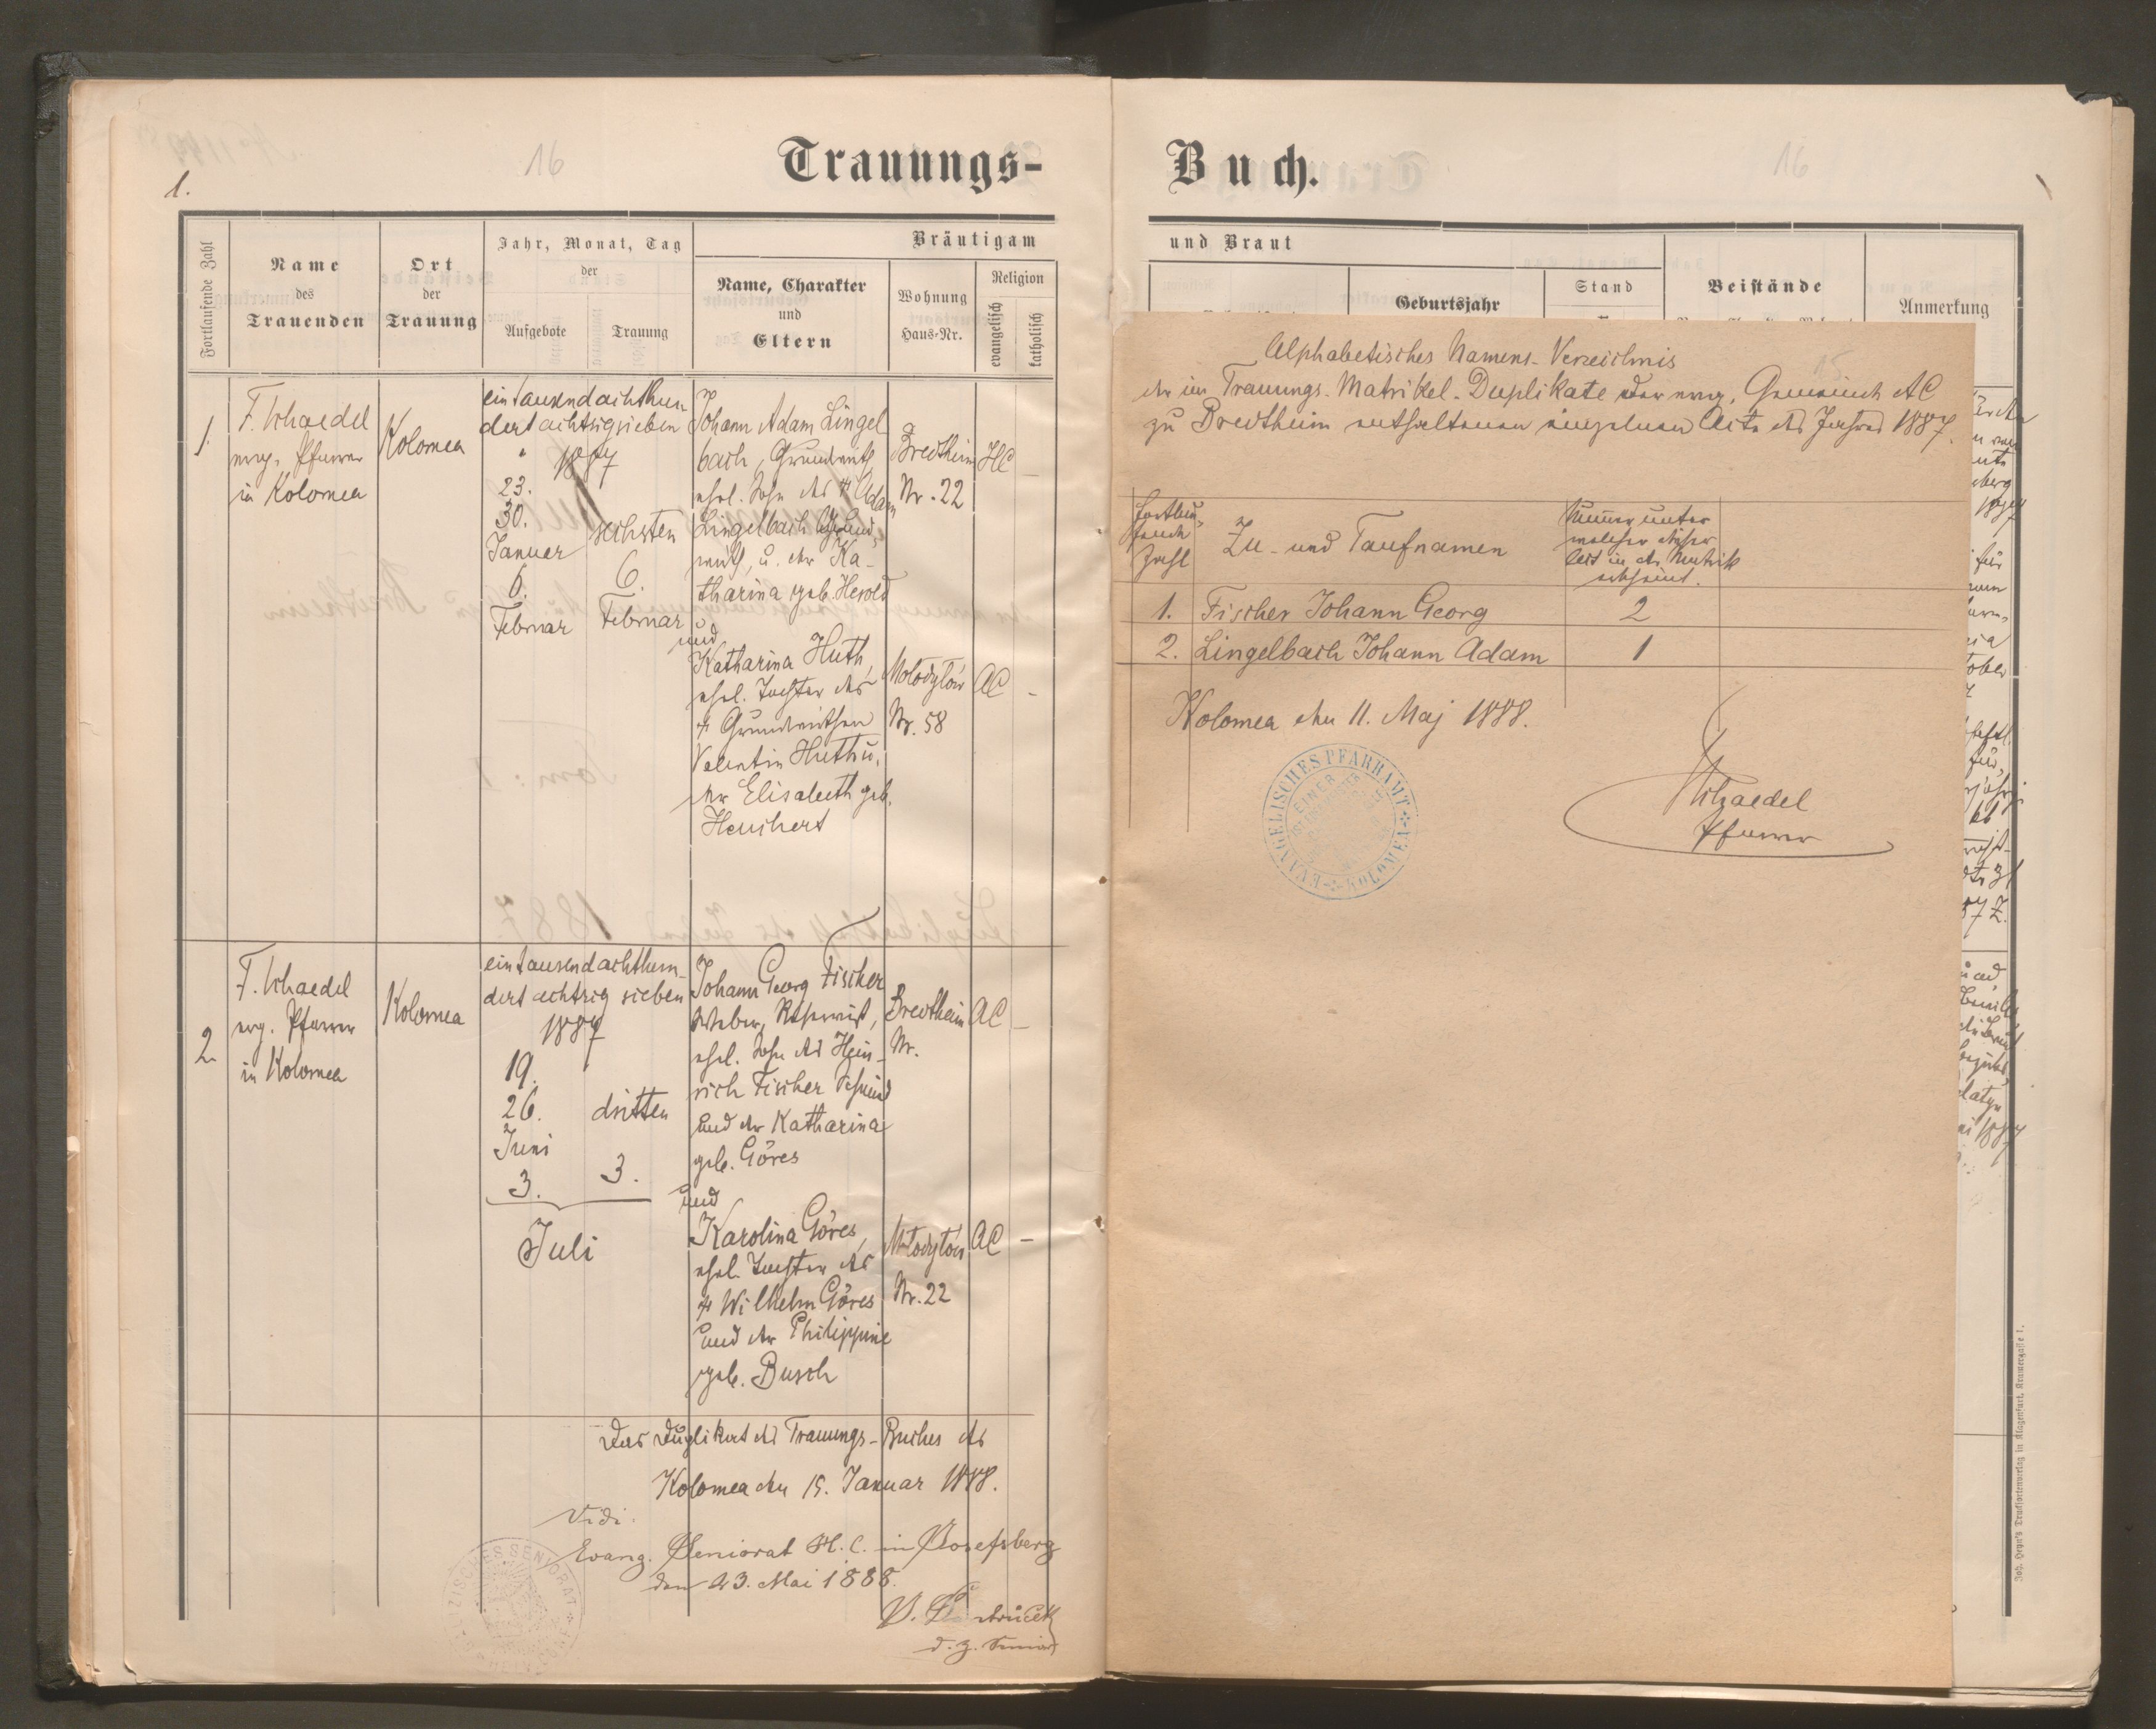 16
1.
Trauungs-
Fortlaufende Zahl
Name
des
Trauenden
Ort
der
Trauung
Jahr, Monat, Tag
der
Aufgebote
Trauung
Bräutigam
Name, Charakter
und
Eltern
Wohnung
Haus-Nr.
Religion
evangelisch
katholisch
1.
F. Schaedel
evng. Pfarrer
in Kolomea
Kolomea
eintausendachthun
dert achtzigsieben
1887
23.
30.
Januer
6.
Februar
sechsten
6.
Februar
Johann Adam Lingel
bach, Grundwirth,
ehel. Sohn des † Adam
Lingelbach Grund
wirth, u. der Ka-
tharina geb. Herold
und
Katharina Huth,
ehel. Tochter des
† Grundwirthen
Valentin Huth u.
der Elisabeth geb.
Heuchert
Bredtheim
Nr. 22
HC
-
Mołodyłów
Nr. 58
AC
-
2.
F. Schaedel
evg. Pfarrer
in Kolomea
Kolomea
eintausendachthun-
dert achtzig sieben
1887
19.
26.
Juni
3.
dritten
3.
Juli
Johann Georg Fischer
Weber, Reservist,
ehel. Sohn des Hein-
rich Fischer Schmied
und der Katharina
geb. Göres
und
Karolina Göres,
ehel. Tochter des
† Wilhelm Göres
und der Philippine
geb. Busch
Bredtheim
Nr.
AC
-
Młodyłów
Nr. 22
AC
-
Das Duplikat des Trauungs-Buches des
Kolomea den 15. Januar 1888.
Vidi:
Evang. Seniorat H. C. in Josefsberg
den 23. Mai 1888.
d. z. Senior
16
Buch.
und Braut
Geburtsjahr
Stand
Beistände
Anmerkung
Alphabetisches Namens-Verzeichnis
der im Trauungs-Matrikel-Duplikate der evng. Gemeinde AC
zu Bredtheim enthaltenen einzelnen Acte des Jahres 1887.
Fortlau-
fende
Zahl
Zu- und Taufnamen
Numer unter
welcher dieser
Act in der Matrik
erscheint.
1. Fischer Johann Georg 2
2. Lingelbach Johann Adam 1
Kolomea den 11. Maj 1888.
EVANGELISCHES PFARRAMT KOLOMEA
Schaedel
Pfarrer
Joh. Heyn's Drucksortenverlag in Klagenfurt, Kramergasse 1.